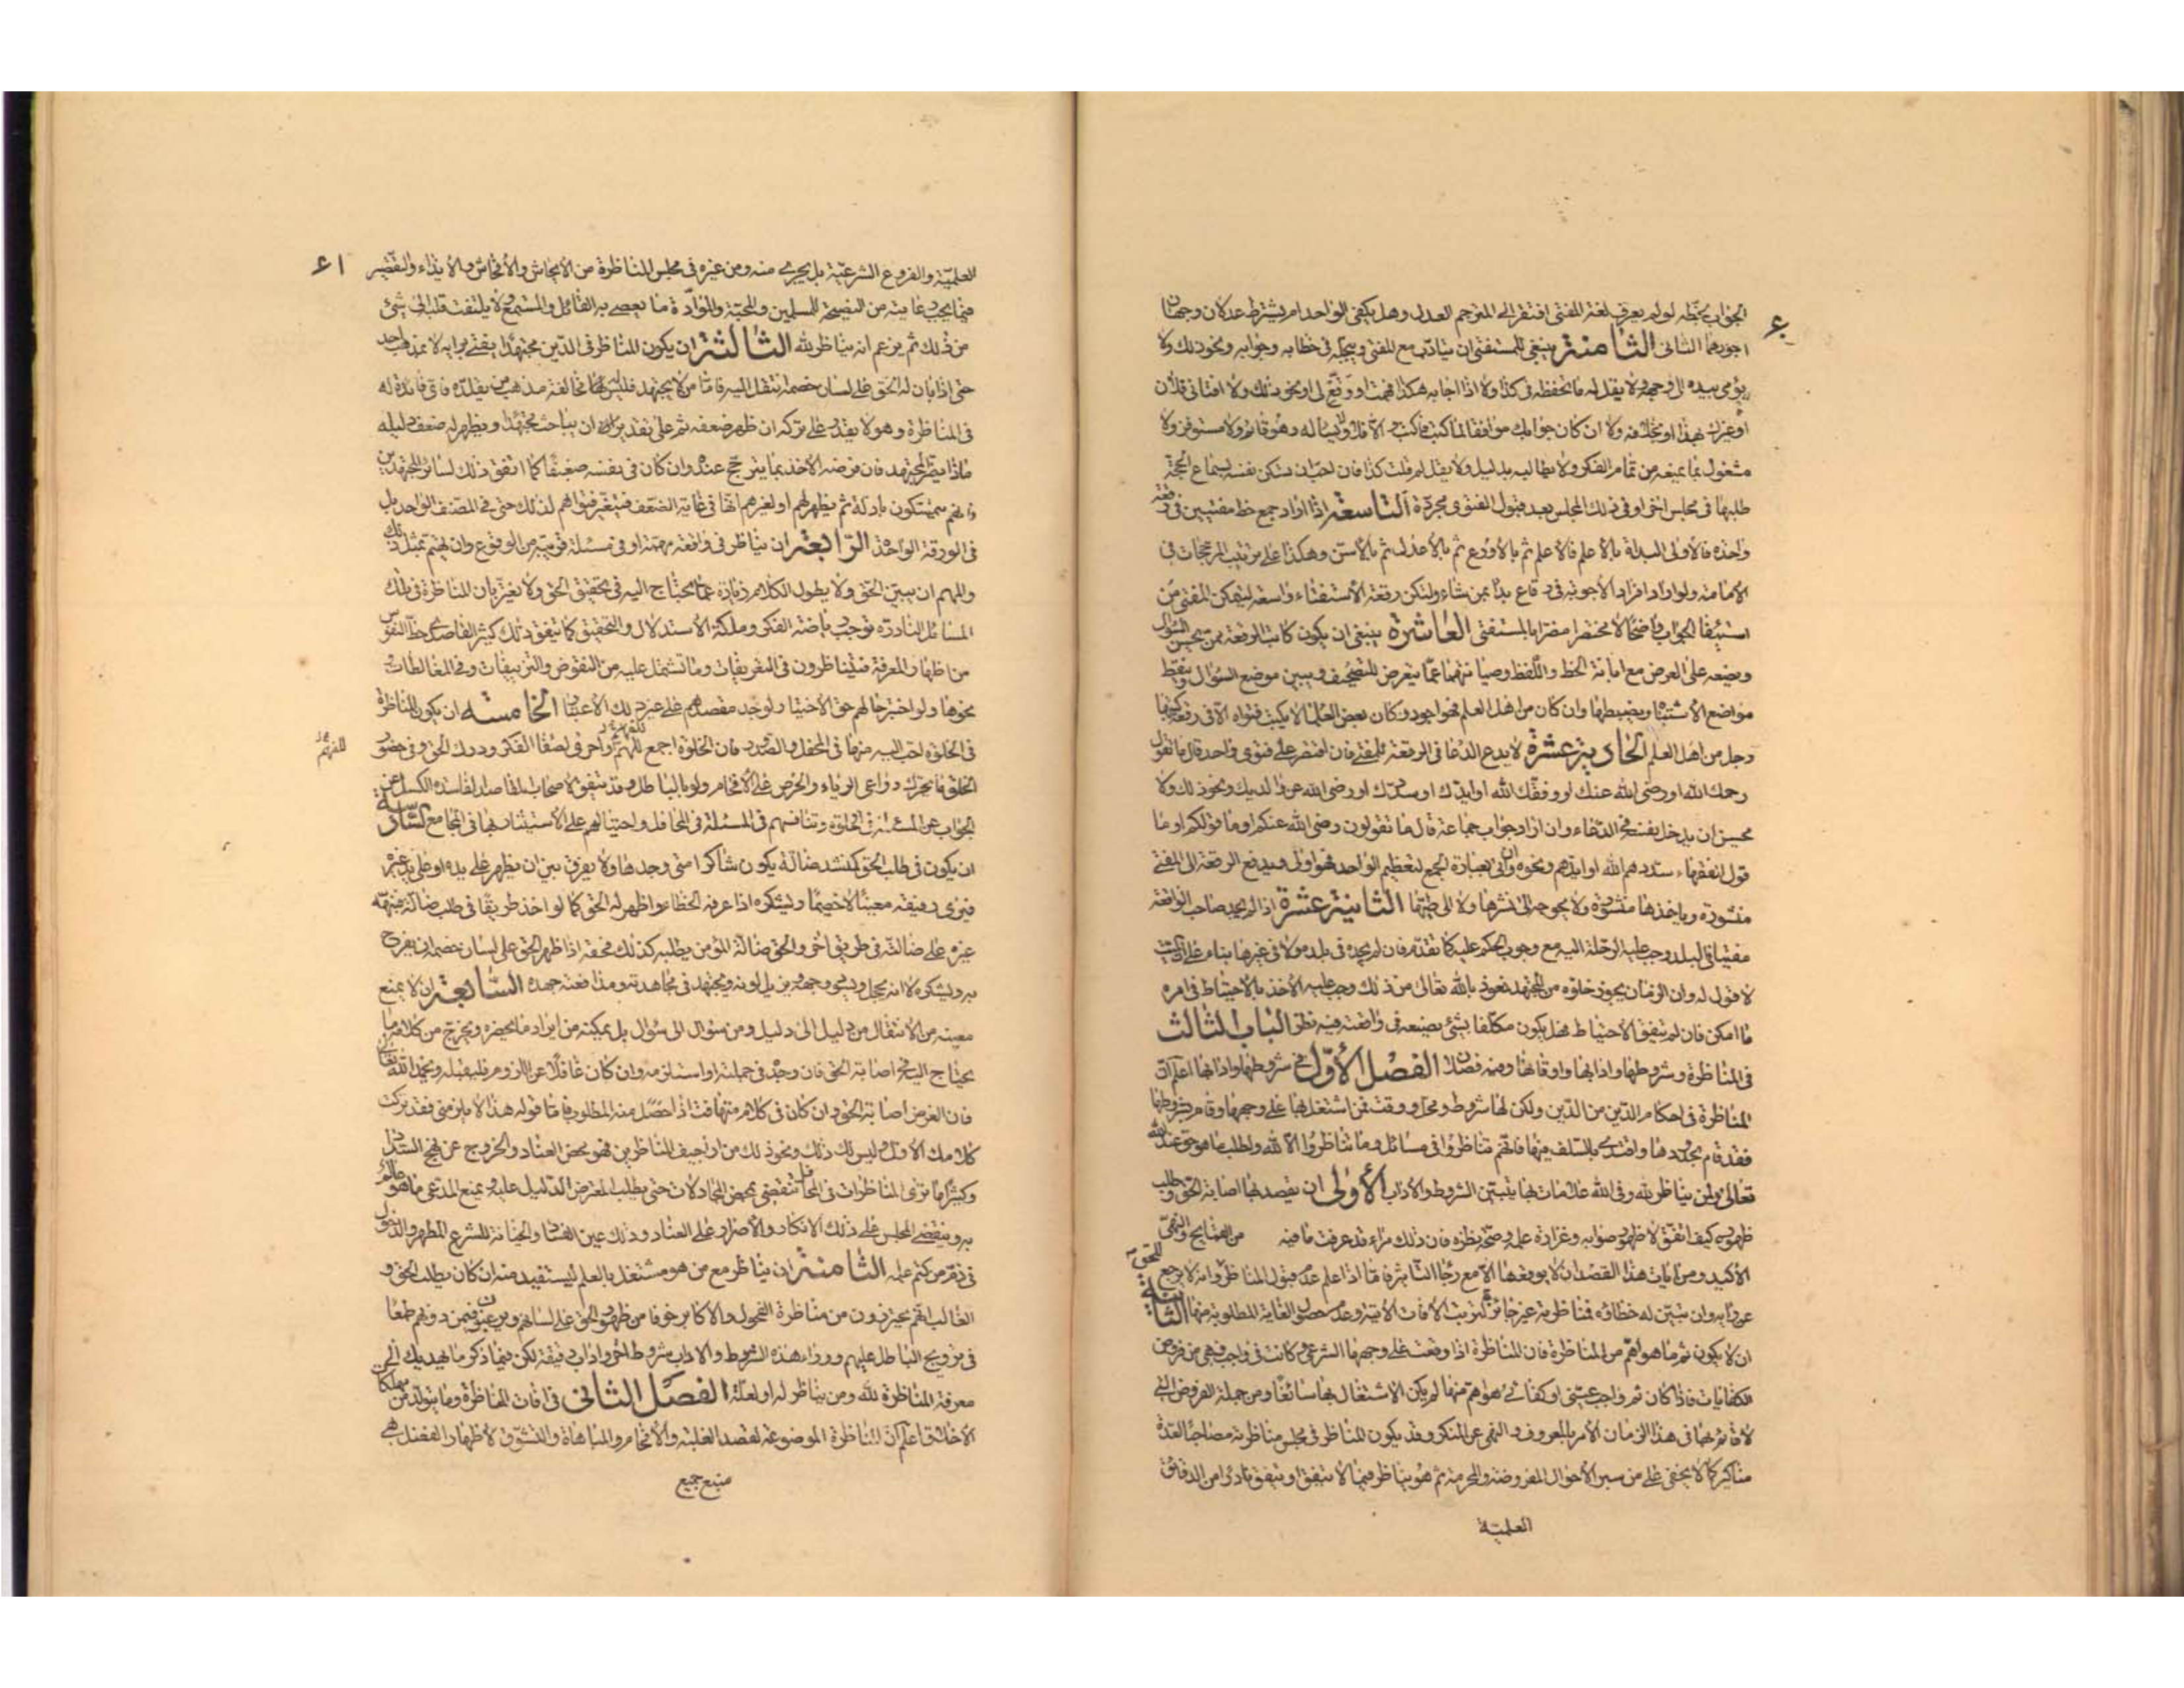 الجواب بخطه لو لم يعرف لغة المفتي افتقر الى المترجم العدل وهل يكفي الواحد ام يشترط عدلان وجهان
اجودهما الثاني الثامنة ينبغي للمستفتي ان يتادب مع المفتي ويبجله في خطابه وجوابه ونحو ذلك ولا
يؤمي بيده الى وجهه ولا يقل له ما تحفظه في كذا ولا اذا اجابه هكذا فهمت او وقع لي او نحو ذلك ولا افتاني فلان
او غيرك بهذا او بخلافه ولا ان كان جوابك موافقا لما كتب فاكتب والا فلا ولا يساله وهو قائم ولا مستوفز ولا
مشغول بما يمنعه من تمام الفكر ولا يطالبه بدليل ولا يقل لم قلت كذا فان احب ان تسكن نفسه بسماع الحجة
طلبها في مجلس اخر او في ذلك المجلس بعد قبول الفتوى مجردة التاسعة اذا اراد جمع خط مفتيين في رقعة
واحدة فالاولى البداة بالاعلم فالاعلم ثم بالاورع ثم بالاعدل ثم بالاسن وهكذا على ترتيب المرجحات في
الامامة ولو اراد افراد الاجوبة في رقاع بدا بمن شاء ولتكن رقعة الاستفتاء واسعة ليتمكن المفتي من
استيفا الجواب واضحا لا مختصرا مضرا بالمستفتي العاشرة ينبغي ان يكون كاتب الرقعة ممن يحسن السؤال
ويضعه على الغرض مع ابانة الخط واللفظ وصيانتهما عما يتعرض للتصحيف ويبين موضع السؤال وينقط
مواضع الاشتباه ويضبطها وان كان من اهل العلم فهو اجود وكان بعض العلماء لا يكتب فتواه الا في رقعة كتبها
رجل من اهل العلم الحادية عشرة لا يدع الدعا في الرقعة للمفتي فان اقتصر على فتوى واحد قال ما تقول
رحمك الله او رضي الله عنك او وفقك الله او ايدك او سددك او رضي الله عن والديك ونحو ذلك ولا
يحسن ان يدخل نفسه في الدعاء وان اراد جواب جماعة قال ما تقولون رضي الله عنكم او ما قولكم او ما
قول الفقهاء سددهم الله او ايدهم ونحوه وان اتى بعبارة الجمع لتعظيم الواحد فهو اولى ويدفع الرقعة الى المفتي
منشورة وياخذها منشورة ولا يحوجه الى نشرها ولا الى طيها الثانية عشرة اذا لم يجد صاحب الواقعة
مفتيا في البلد وجب عليه الرحلة اليه مع وجود الحكم عليه كما تقدم فان لم يجده في بلده ولا في غيرها بناء على ان الميت
لا قول له وان الزمان يجوز خلوه من المجتهد نعوذ بالله تعالى من ذلك وجب عليه الاخذ بالاحتياط في امره
ما امكن فان لم يتفق الاحتياط فهل يكون مكلفا بشئ يصنعه في واقعته فيه نظر الباب الثالث
في المناظرة وشروطها وادابها وافاتها وفيه فصلان الفصل الأول في شروطها وادابها اعلم ان
المناظرة في احكام الدين من الدين ولكن لها شروط ومحل ووقت فمن اشتغل بها على وجهها وقام بشروطها
فقد قام بحدودها واقتدى بالسلف فيها فانهم تناظروا في مسائل وما تناظروا الا لله ولطلب ما هو حق عند الله
تعالى ولمن يناظر لله وفي الله علامات بها يتبين الشروط والاداب الأولى ان يقصد بها اصابة الحق وطلب
ظهوره كيف اتفق لا ظهور صوابه وغزارة علمه وصحة نظره فان ذلك مراء قد عرفت ما فيه من القبايح والنهي
الاكيد ومن ايات هذا القصد ان لا يوقعها الا مع رجاء التاثير فاما اذا علم عدم قبول المناظر للحق وانه لا يرجع
عن رايه وان تبين له خطاؤه فمناظرته غير جائزة لترتب الافات الاتية وعدم حصول الغاية المطلوبة منها الثانية
ان لا يكون ثم ما هو اهم من المناظرة فان المناظرة اذا وقعت على وجهها الشرعي وكانت في واجب فهي من فروض
الكفايات فاذا كان ثم واجب عيني او كفائي هو اهم منها لم يكن الاشتغال بها سائغا ومن جملة الفروض التي
لا قائم بها في هذا الزمان الامر بالمعروف والنهي عن المنكر وقد يكون المناظر في مجلس مناظرته مصاحبا لعدة
مناكير كما لا يخفى على من سبر الاحوال المفروضة والمحرمة ثم هو يناظر فيما لا يتفق او يتفق نادرا من الدقائق
العلمية
ا۶
العلمية والفروع الشرعية بل يجري منه ومن غيره في مجلس المناظرة من الايحاش والافحاش والايذاء والتقصير
فيما يجب رعايته من النصيحة للمسلمين والمحبة والموادة ما يعصي به القائل والمستمع ولا يلتفت قلبه الى شئ
من ذلك ثم يزعم انه يناظر لله الثالثة ان يكون المناظر في الدين مجتهدا يفتي برايه لا بمذهب احد
حتى اذا بان له الحق على لسان خصمه انتقل اليه فاما من لا يجتهد فليس له مخالفة مذهب من يقلده فاي فائدة له
في المناظرة وهو لا يقدر على تركه ان ظهر ضعفه ثم على تقدير ان يباحث مجتهدا ويظهر له ضعف دليله
ماذا يضر المجتهد فان فرضه الاخذ بما يترجح عنده وان كان في نفسه ضعيفا كما اتفق ذلك لسائر المجتهدين
فانهم يتمسكون بادلة ثم يظهر لهم او لغيرهم انها في غاية الضعف فيتغير فتواهم لذلك حتى في المصنف الواحد بل
في الورقة الواحدة الرابعة ان يناظر في واقعة مهمة او في مسئلة قريبة من الوقوع وان يهتم بمثل ذلك
والمهم ان يبين الحق ولا يطول الكلام زيادة عما يحتاج اليه في تحقيق الحق ولا يغتر بان المناظرة في تلك
المسائل النادرة توجب رياضة الفكر وملكة الاستدلال والتحقيق كما يتفق ذلك كثيرا لقاصدي حظ النفوس
من اظهار المعرفة فيتناظرون في التعريفات وما تشتمل عليه من النقوض والتزييفات وفي المغالطات
نحوها ولو اختبر حالهم حق الاختبار لوجد مقصدهم على غير ذلك الاعتبار الخامسة ان يكون المناظرة
في الخلوة احب اليه منها في المحفل والصدر فان الخلوة اجمع للهم واحرى لصفاء الفكر ودرك الحق وفي حضور
للفهم
الخلق ما يحرك دواعي الرياء والحرص على الافحام ولو بالباطل وقد يتفق لاصحاب المقاصد الفاسدة الكسل عن
الجواب عن المسئلة في الخلوة وتنافسهم في المسئلة في المحافل واحتيالهم على الاستيثار بها في المجامع السادسة
ان يكون في طلب الحق كمنشد ضالة يكون شاكرا متى وجدها ولا يفرق بين ان يظهر على يده او على يد غيره
فيرى رفيقه معينا لا خصما ويشكره اذا عرفه الخطاء واظهر له الحق كما لو اخذ طريقا في طلب ضالة فنبهه
غيره على ضالته في طريق اخر والحق ضالة المؤمن يطلبه كذلك فحقه اذا ظهر الحق على لسان خصمه ان يفرح
به ويشكره لا انه يخجل ويسود وجهه ويزيل لونه ويجتهد في مجاهدته ومدافعته جهده السابعة ان لا يمنع
معينه من الانتقال من دليل الى دليل ومن سؤال الى سؤال بل يمكنه من ايراد ما يحضره ويخرج من كلامه ما
يحتاج اليه في اصابة الحق فان وجده في جملته او استلزمه وان كان غافلا عن اللزوم فليقبله ويحمد الله تعالى
فان الغرض اصابة الحق وان كان في كلام متهافت اذا حصل منه المطلوب فاما قوله هذا لا يلزمني فقد تركت
كلامك الاول وليس لك ذلك ونحو ذلك من اراجيف المناظرين فهو محض العناد والخروج عن نهج السداد
وكثيرا ما ترى المناظرات في المحافل تنقضي بمحض المجادلات حتى يطلب المعترض الدليل عليه ويمنع المدعي ما هو عالم
به وينقضي المجلس على ذلك الانكار والاصرار على العناد وذلك عين الفساد والخيانة للشرع المطهر والدخول
في ذم من كتم علمه الثامنة ان يناظر مع من هو مشتغل بالعلم ليستفيد منه ان كان يطلب الحق و
الغالب انهم يحترزون من مناظرة الفحول والاكابر خوفا من ظهور الحق على لسانهم ويرغبون فيمن دونهم طمعا
في ترويج الباطل عليهم ووراء هذه الشروط والاداب شروط اخر واداب دقيقة لكن فيما ذكر ما يهديك الى
معرفة المناظرة لله ومن يناظر له او لعلة الفصل الثاني في افات المناظرة وما يتولد منها من مهلكات
الاخلاق اعلم ان المناظرة الموضوعة لقصد الغلبة والافحام والمباهاة والتشوق لاظهار الفضل هي
منبع جميع